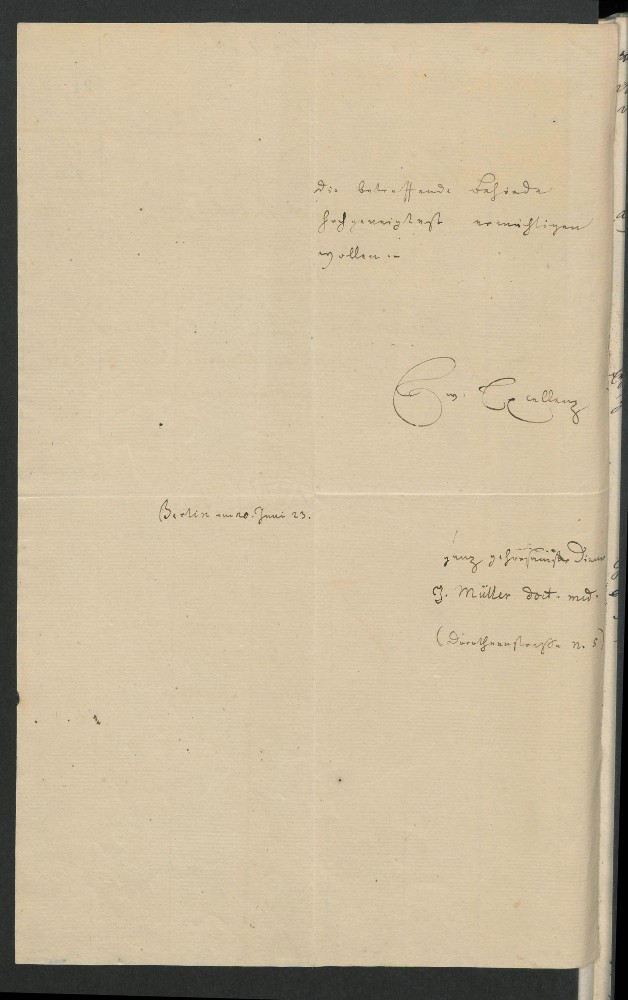 die betreffende Behörde
hochgeneigtest ermächtigen
wollen. –
Ew. Excellenz
Berlin am 20. Juni 23.
ganz gehorsamster Diener
J. Müller doct. med.
(Dorotheenstraße n. 5)